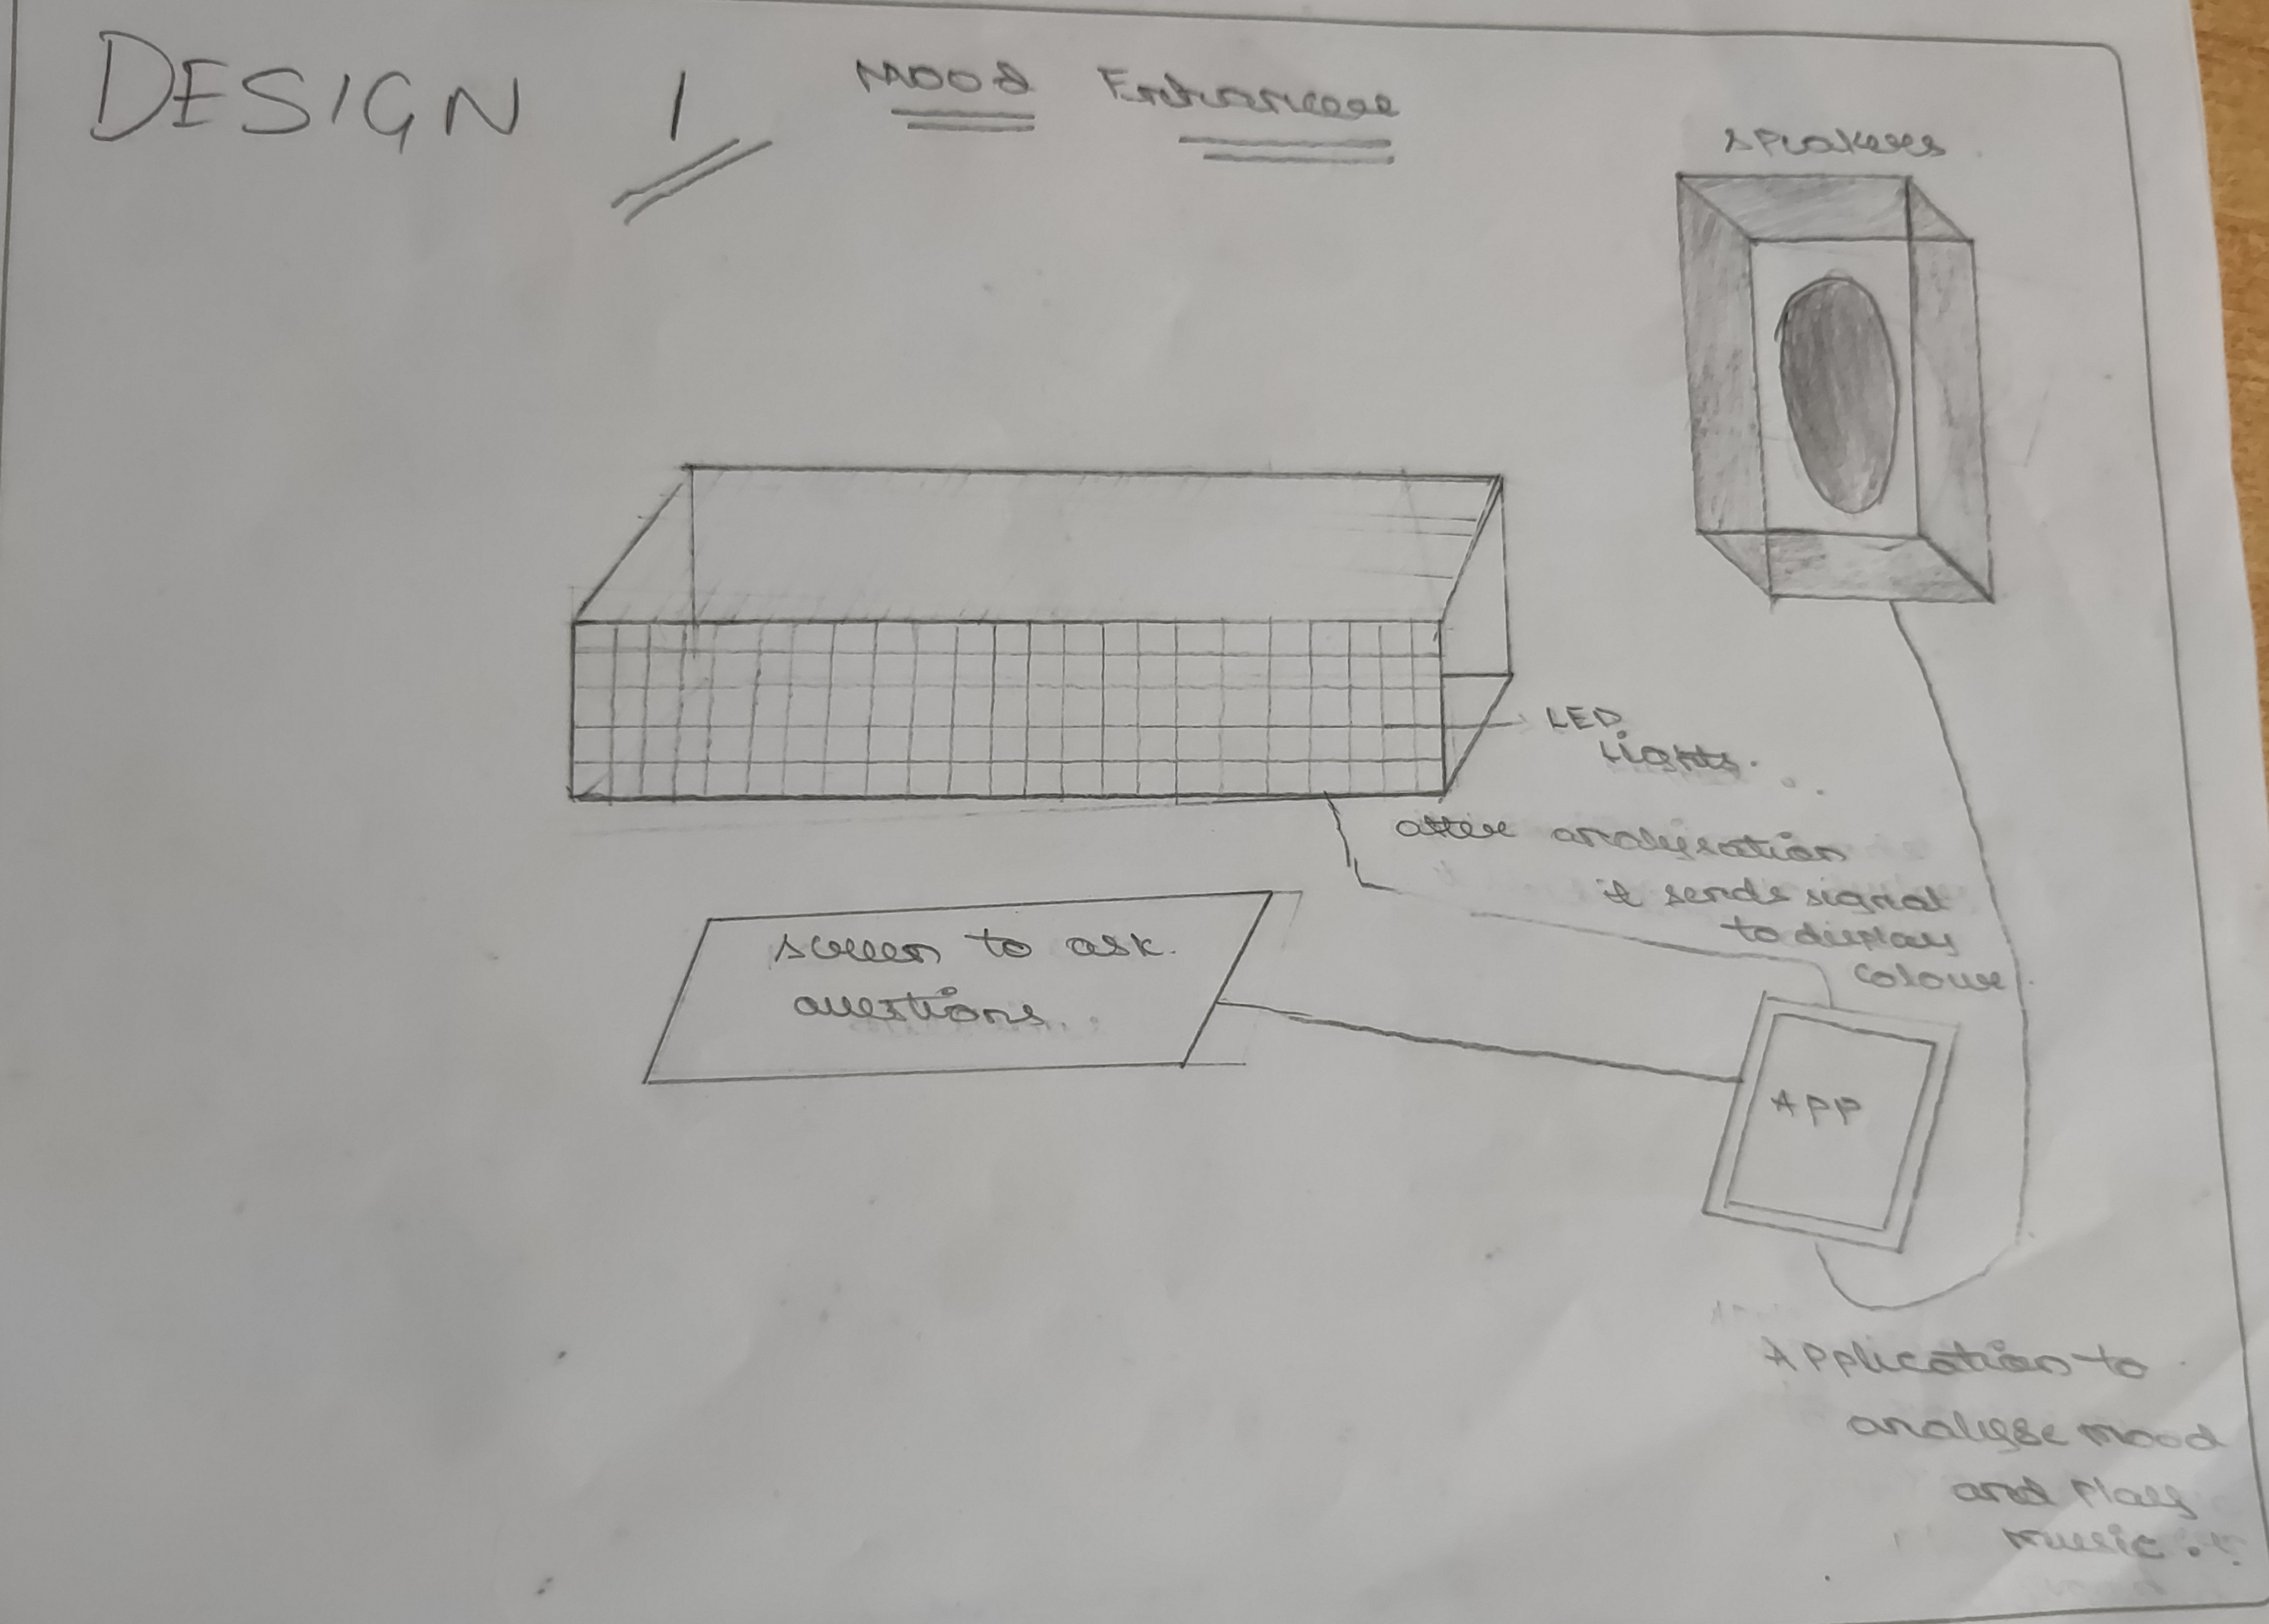 DESIGN 1
Mood Enhancer
speakers
LED
Lights.
after analysation
it sends signal
to display
colour.
screen to ask.
questions.
APP
Application to
analyse mood
and play
music.